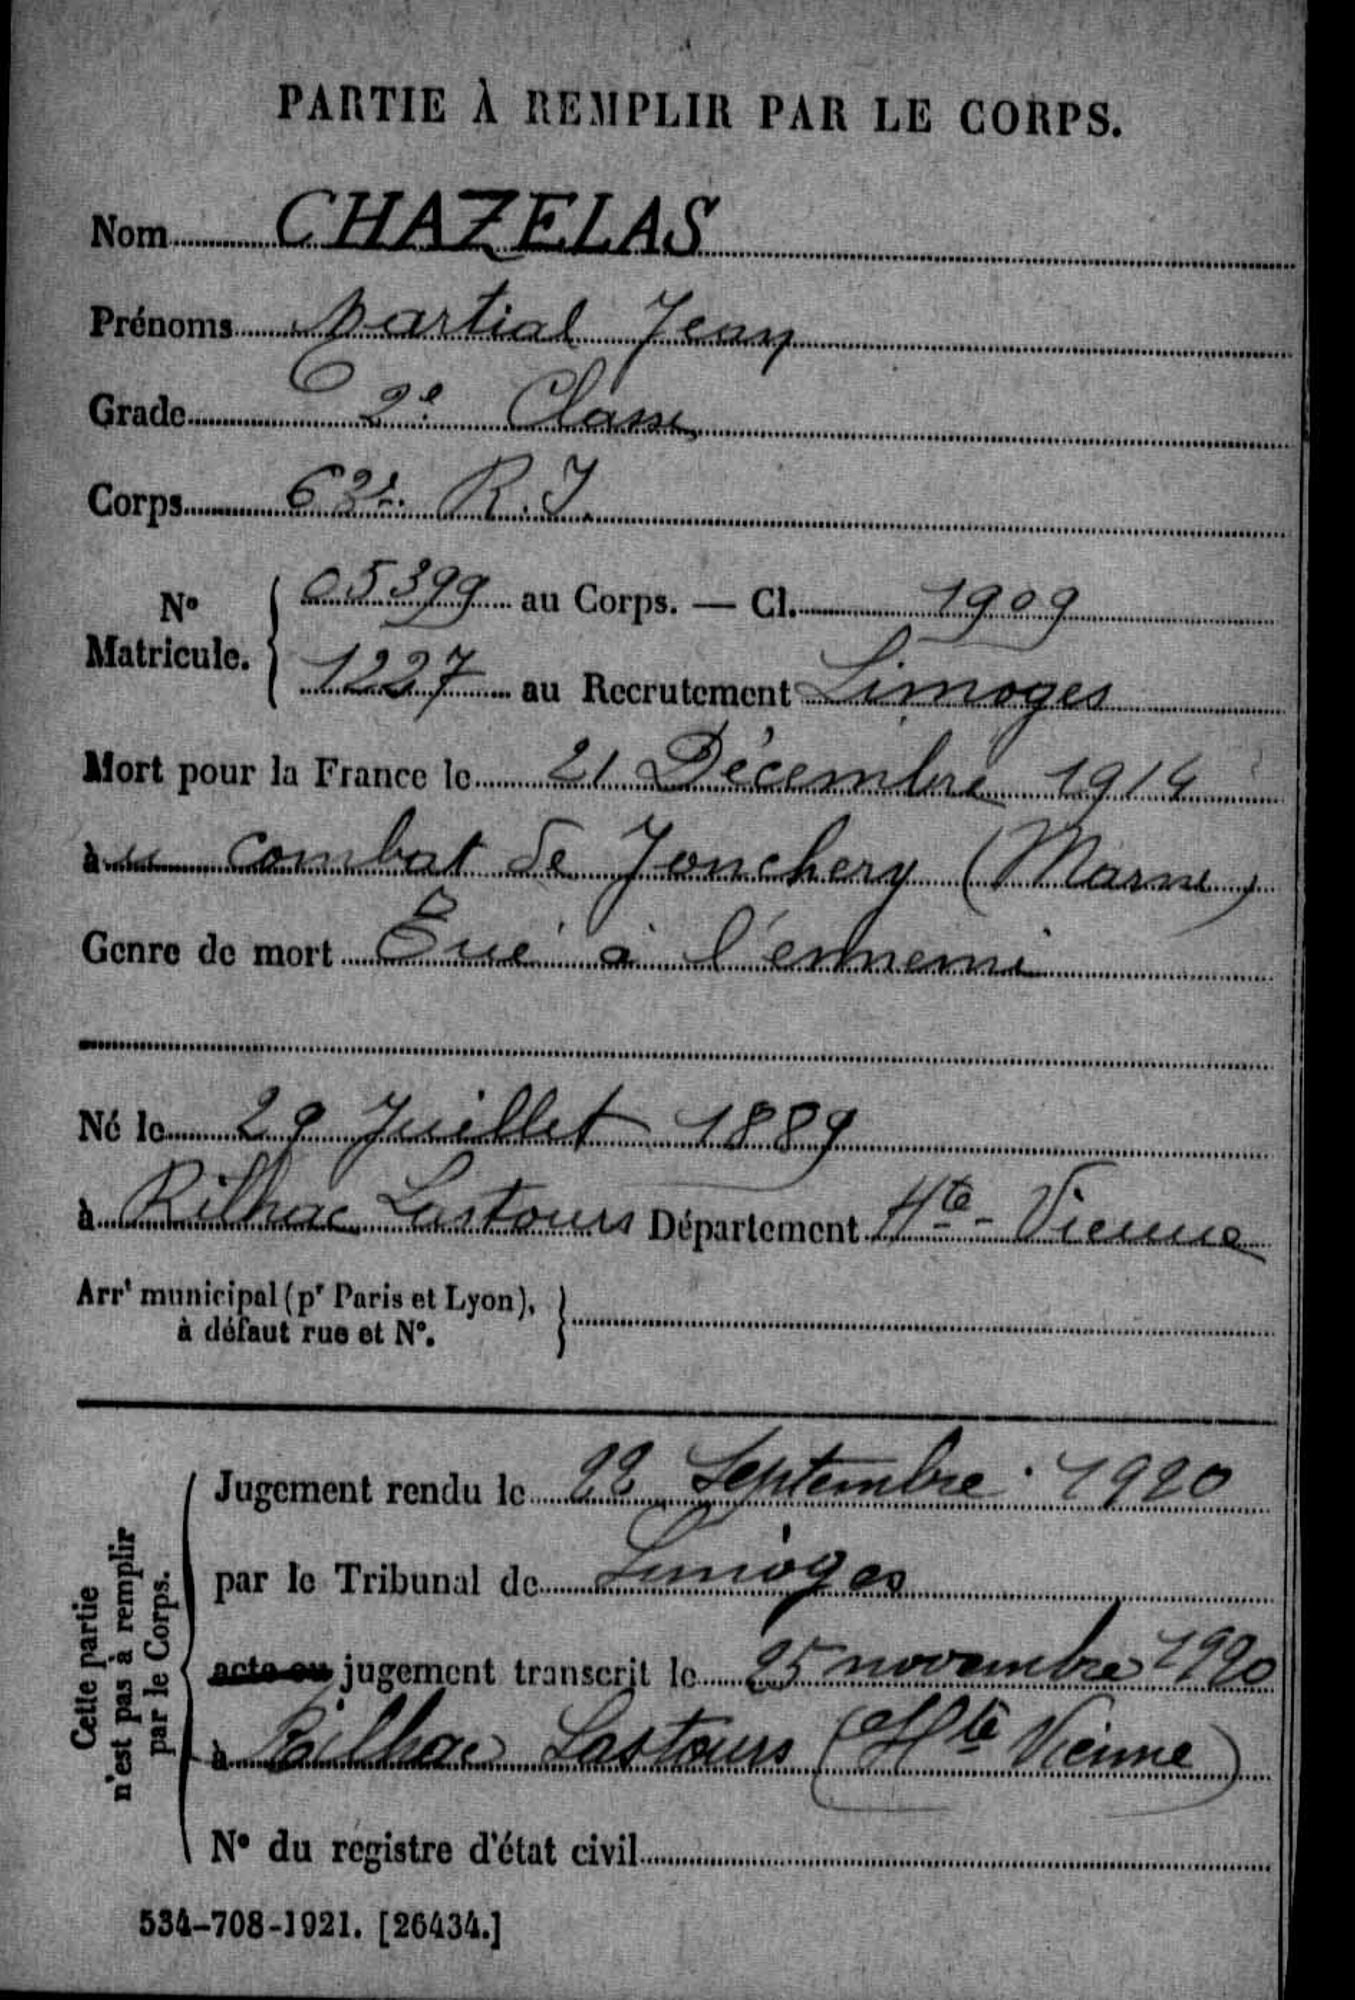 PARTIE À REMPLIR PAR LE CORPS.
Nom CHAZELAS
Prénoms Martial Jean
Grade 2e Classe
Corps 63e R.I.
No Matricule. { 05399 au Corps. — Cl. 1909
1227 au Recrutement Limoges
Mort pour la France le 21 Décembre 1914
au combat de Jonchery (Marne)
Genre de mort Tué à l'ennemi
Né le 29 Juillet 1889
à Rilhac Lastours Département Hte-Vienne
Arrt municipal (pr Paris et Lyon),
à défaut rue et No.
Cette partie
n'est pas à remplir
par le Corps.
Jugement rendu le 22 Septembre 1920
par le Tribunal de Limoges
acte ou jugement transcrit le 25 novembre 1920
à Rilhac Lastours (Hte Vienne)
No du registre d'état civil
534-708-1921. [26434.]